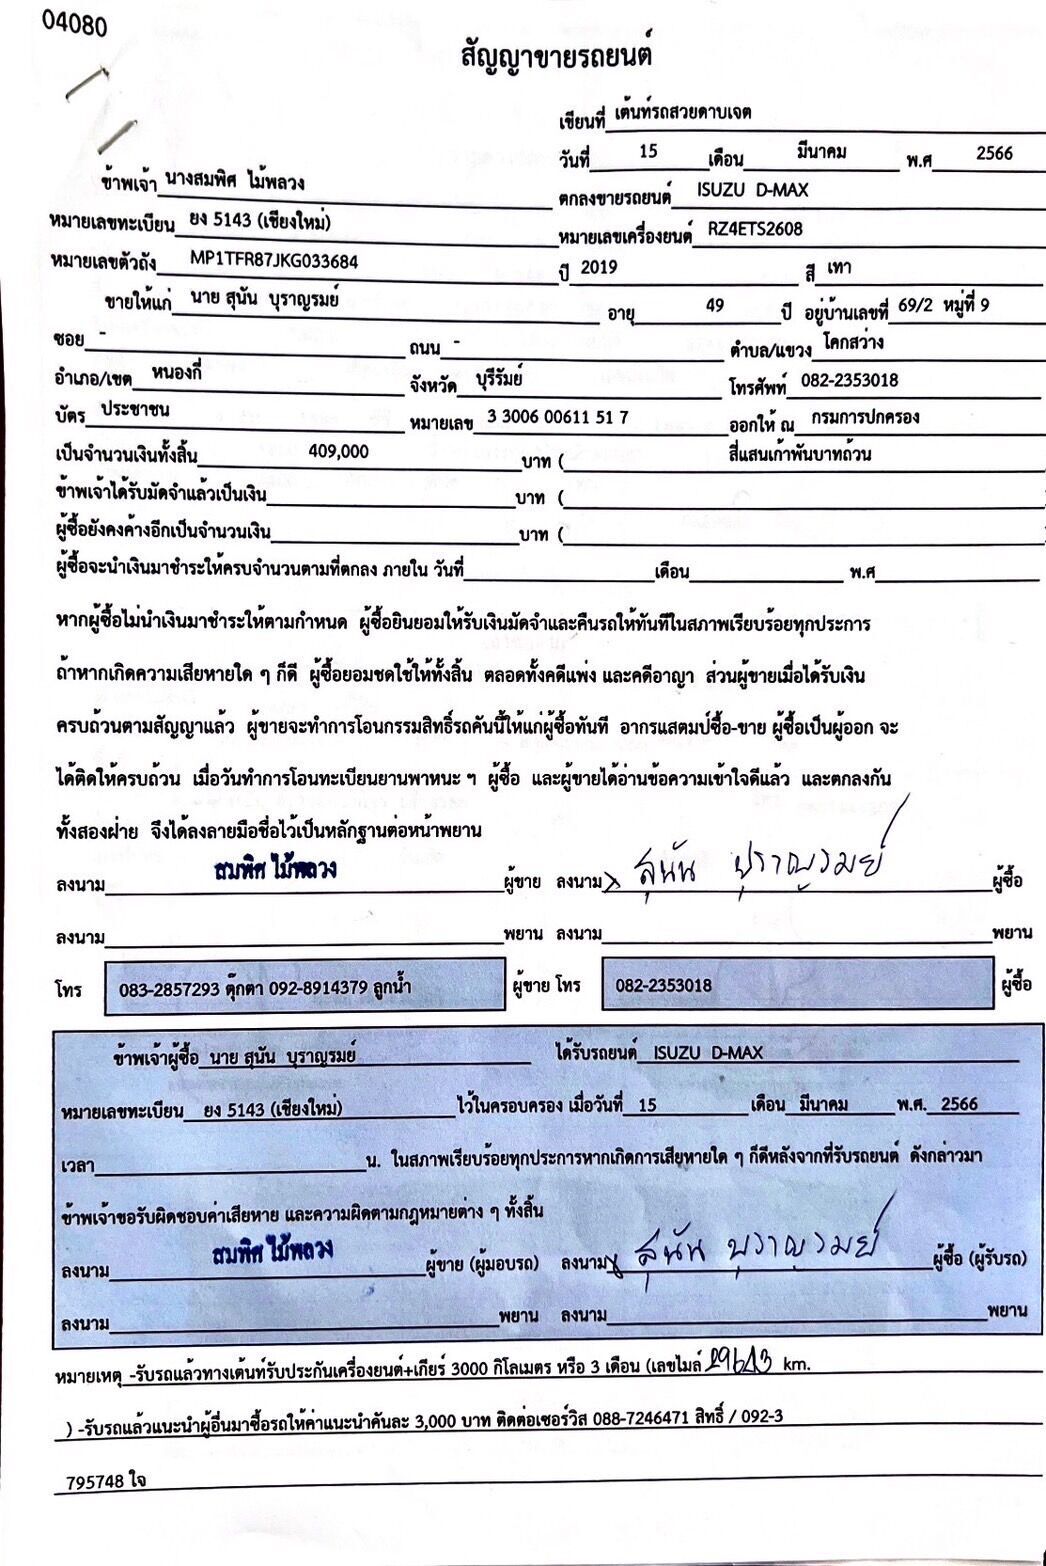 04080
สัญญาขายรถยนต์
เขียนที่ เต้นท์รถสวยดาบเจต
วันที่ 15 เดือน มีนาคม พ.ศ 2566
ข้าพเจ้า นางสมพิศ ไม้พลวง ตกลงขายรถยนต์ ISUZU D-MAX
หมายเลขทะเบียน ยง 5143 (เชียงใหม่) หมายเลขเครื่องยนต์ RZ4ETS2608
หมายเลขตัวถัง MP1TFR87JKG033684 ปี 2019 สี เทา
ขายให้แก่ นาย สุนัน บุราญรมย์ อายุ 49 ปี อยู่บ้านเลขที่ 69/2 หมู่ที่ 9
ซอย - ถนน - ตำบล/แขวง โคกสว่าง
อำเภอ/เขต หนองกี่ จังหวัด บุรีรัมย์ โทรศัพท์ 082-2353018
บัตร ประชาชน หมายเลข 3 3006 00611 51 7 ออกให้ ณ กรมการปกครอง
เป็นจำนวนเงินทั้งสิ้น 409,000 บาท ( สี่แสนเก้าพันบาทถ้วน
ข้าพเจ้าได้รับมัดจำแล้วเป็นเงิน บาท (
ผู้ซื้อยังคงค้างอีกเป็นจำนวนเงิน บาท (
ผู้ซื้อจะนำเงินมาชำระให้ครบจำนวนตามที่ตกลง ภายใน วันที่ เดือน พ.ศ
หากผู้ซื้อไม่นำเงินมาชำระให้ตามกำหนด ผู้ซื้อยินยอมให้รับเงินมัดจำและคืนรถให้ทันทีในสภาพเรียบร้อยทุกประการ
ถ้าหากเกิดความเสียหายใด ๆ ก็ดี ผู้ซื้อยอมชดใช้ให้ทั้งสิ้น ตลอดทั้งคดีแพ่ง และคดีอาญา ส่วนผู้ขายเมื่อได้รับเงิน
ครบถ้วนตามสัญญาแล้ว ผู้ขายจะทำการโอนกรรมสิทธิ์รถคันนี้ให้แก่ผู้ซื้อทันที อากรแสตมป์ซื้อ-ขาย ผู้ซื้อเป็นผู้ออก จะ
ได้ติดให้ครบถ้วน เมื่อวันทำการโอนทะเบียนยานพาหนะ ฯ ผู้ซื้อ และผู้ขายได้อ่านข้อความเข้าใจดีแล้ว และตกลงกัน
ทั้งสองฝ่าย จึงได้ลงลายมือชื่อไว้เป็นหลักฐานต่อหน้าพยาน
ลงนาม สมพิศ ไม้พลวง ผู้ขาย ลงนาม สุนัน บุราญรมย์ ผู้ซื้อ
ลงนาม พยาน ลงนาม พยาน
โทร 083-2857293 ตุ๊กตา 092-8914379 ลูกน้ำ ผู้ขาย โทร 082-2353018 ผู้ซื้อ
ข้าพเจ้าผู้ซื้อ นาย สุนัน บุราญรมย์ ได้รับรถยนต์ ISUZU D-MAX
หมายเลขทะเบียน ยง 5143 (เชียงใหม่) ไว้ในครอบครอง เมื่อวันที่ 15 เดือน มีนาคม พ.ศ. 2566
เวลา น. ในสภาพเรียบร้อยทุกประการหากเกิดการเสียหายใด ๆ ก็ดีหลังจากที่รับรถยนต์ ดังกล่าวมา
ข้าพเจ้าขอรับผิดชอบค่าเสียหาย และความผิดตามกฎหมายต่าง ๆ ทั้งสิ้น
ลงนาม สมพิศ ไม้พลวง ผู้ขาย (ผู้มอบรถ) ลงนาม สุนัน บุราญรมย์ ผู้ซื้อ (ผู้รับรถ)
ลงนาม พยาน ลงนาม พยาน
หมายเหตุ -รับรถแล้วทางเต้นท์รับประกันเครื่องยนต์+เกียร์ 3000 กิโลเมตร หรือ 3 เดือน (เลขไมล์ km.
) -รับรถแล้วแนะนำผู้อื่นมาซื้อรถให้ค่าแนะนำคันละ 3,000 บาท ติดต่อเซอร์วิส 088-7246471 สิทธิ์ / 092-3
795748 ใจ